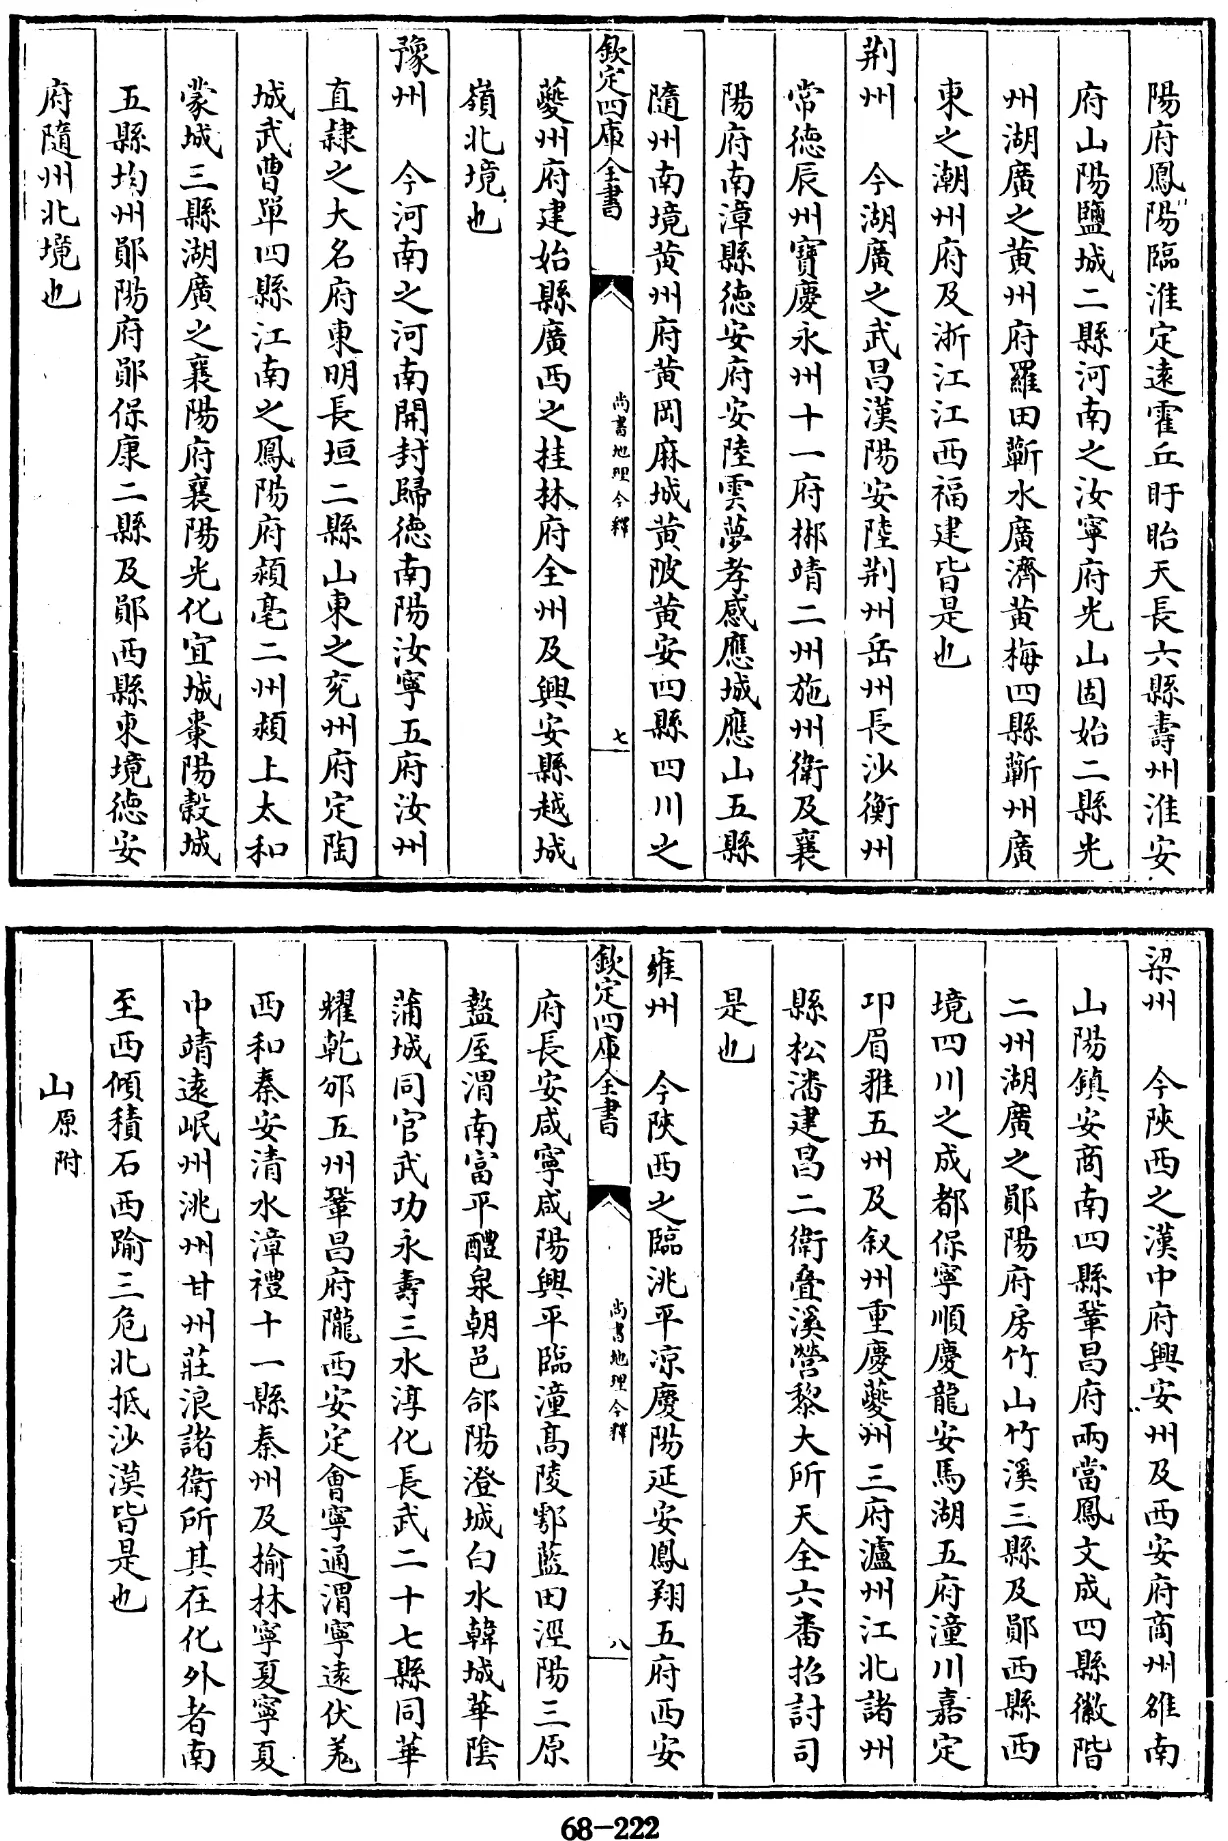 陽府鳳陽臨淮定遠霍丘盱眙天長六縣壽州淮安
府山陽鹽城二縣河南之汝寧府光山固始二縣光
州湖廣之黄州府羅田蘄水廣濟黄梅四縣蘄州廣
東之潮州府及浙江江西福建皆是也
荆州　今湖廣之武昌漢陽安陸荆州岳州長沙衡州
常德辰州寶慶永州十一府郴靖二州施州衛及襄
陽府南漳縣德安府安陸雲夢孝感應城應山五縣
隨州南境黄州府黄岡麻城黄陂黄安四縣四川之
欽定四庫全書
尚書地理今釋
七
夔州府建始縣廣西之桂林府全州及興安縣越城
嶺北境也
豫州　今河南之河南開封歸德南陽汝寧五府汝州
直隸之大名府東明長垣二縣山東之兖州府定陶
城武曹單四縣江南之鳳陽府潁亳二州潁上太和
蒙城三縣湖廣之襄陽府襄陽光化宜城棗陽穀城
五縣均州鄖陽府鄖保康二縣及鄖西縣東境德安
府隨州北境也
梁州　今陜西之漢中府興安州及西安府商州雒南
山陽鎮安商南四縣鞏昌府兩當鳳文成四縣徽階
二州湖廣之鄖陽府房竹山竹溪三縣及鄖西縣西
境四川之成都保寧順慶龍安馬湖五府潼川嘉定
卭眉雅五州及叙州重慶夔州三府瀘州江北諸州
縣松潘建昌二衛疊溪營黎大所天全六番招討司
是也
雍州　今陜西之臨洮平凉慶陽延安鳳翔五府西安
欽定四庫全書
尚書地理今釋
八
府長安咸寧咸陽興平臨潼髙陵鄠藍田涇陽三原
盩厔渭南富平醴泉朝邑郃陽澄城白水韓城華陰
蒲城同官武功永壽三水淳化長武二十七縣同華
耀乾邠五州鞏昌府隴西安定會寧通渭寧逺伏羌
西和秦安清水漳禮十一縣秦州及榆林寧夏寧夏
中靖逺岷州洮州甘州莊浪諸衛所其在化外者南
至西傾積石西踰三危北抵沙漠皆是也
山原附
68-222